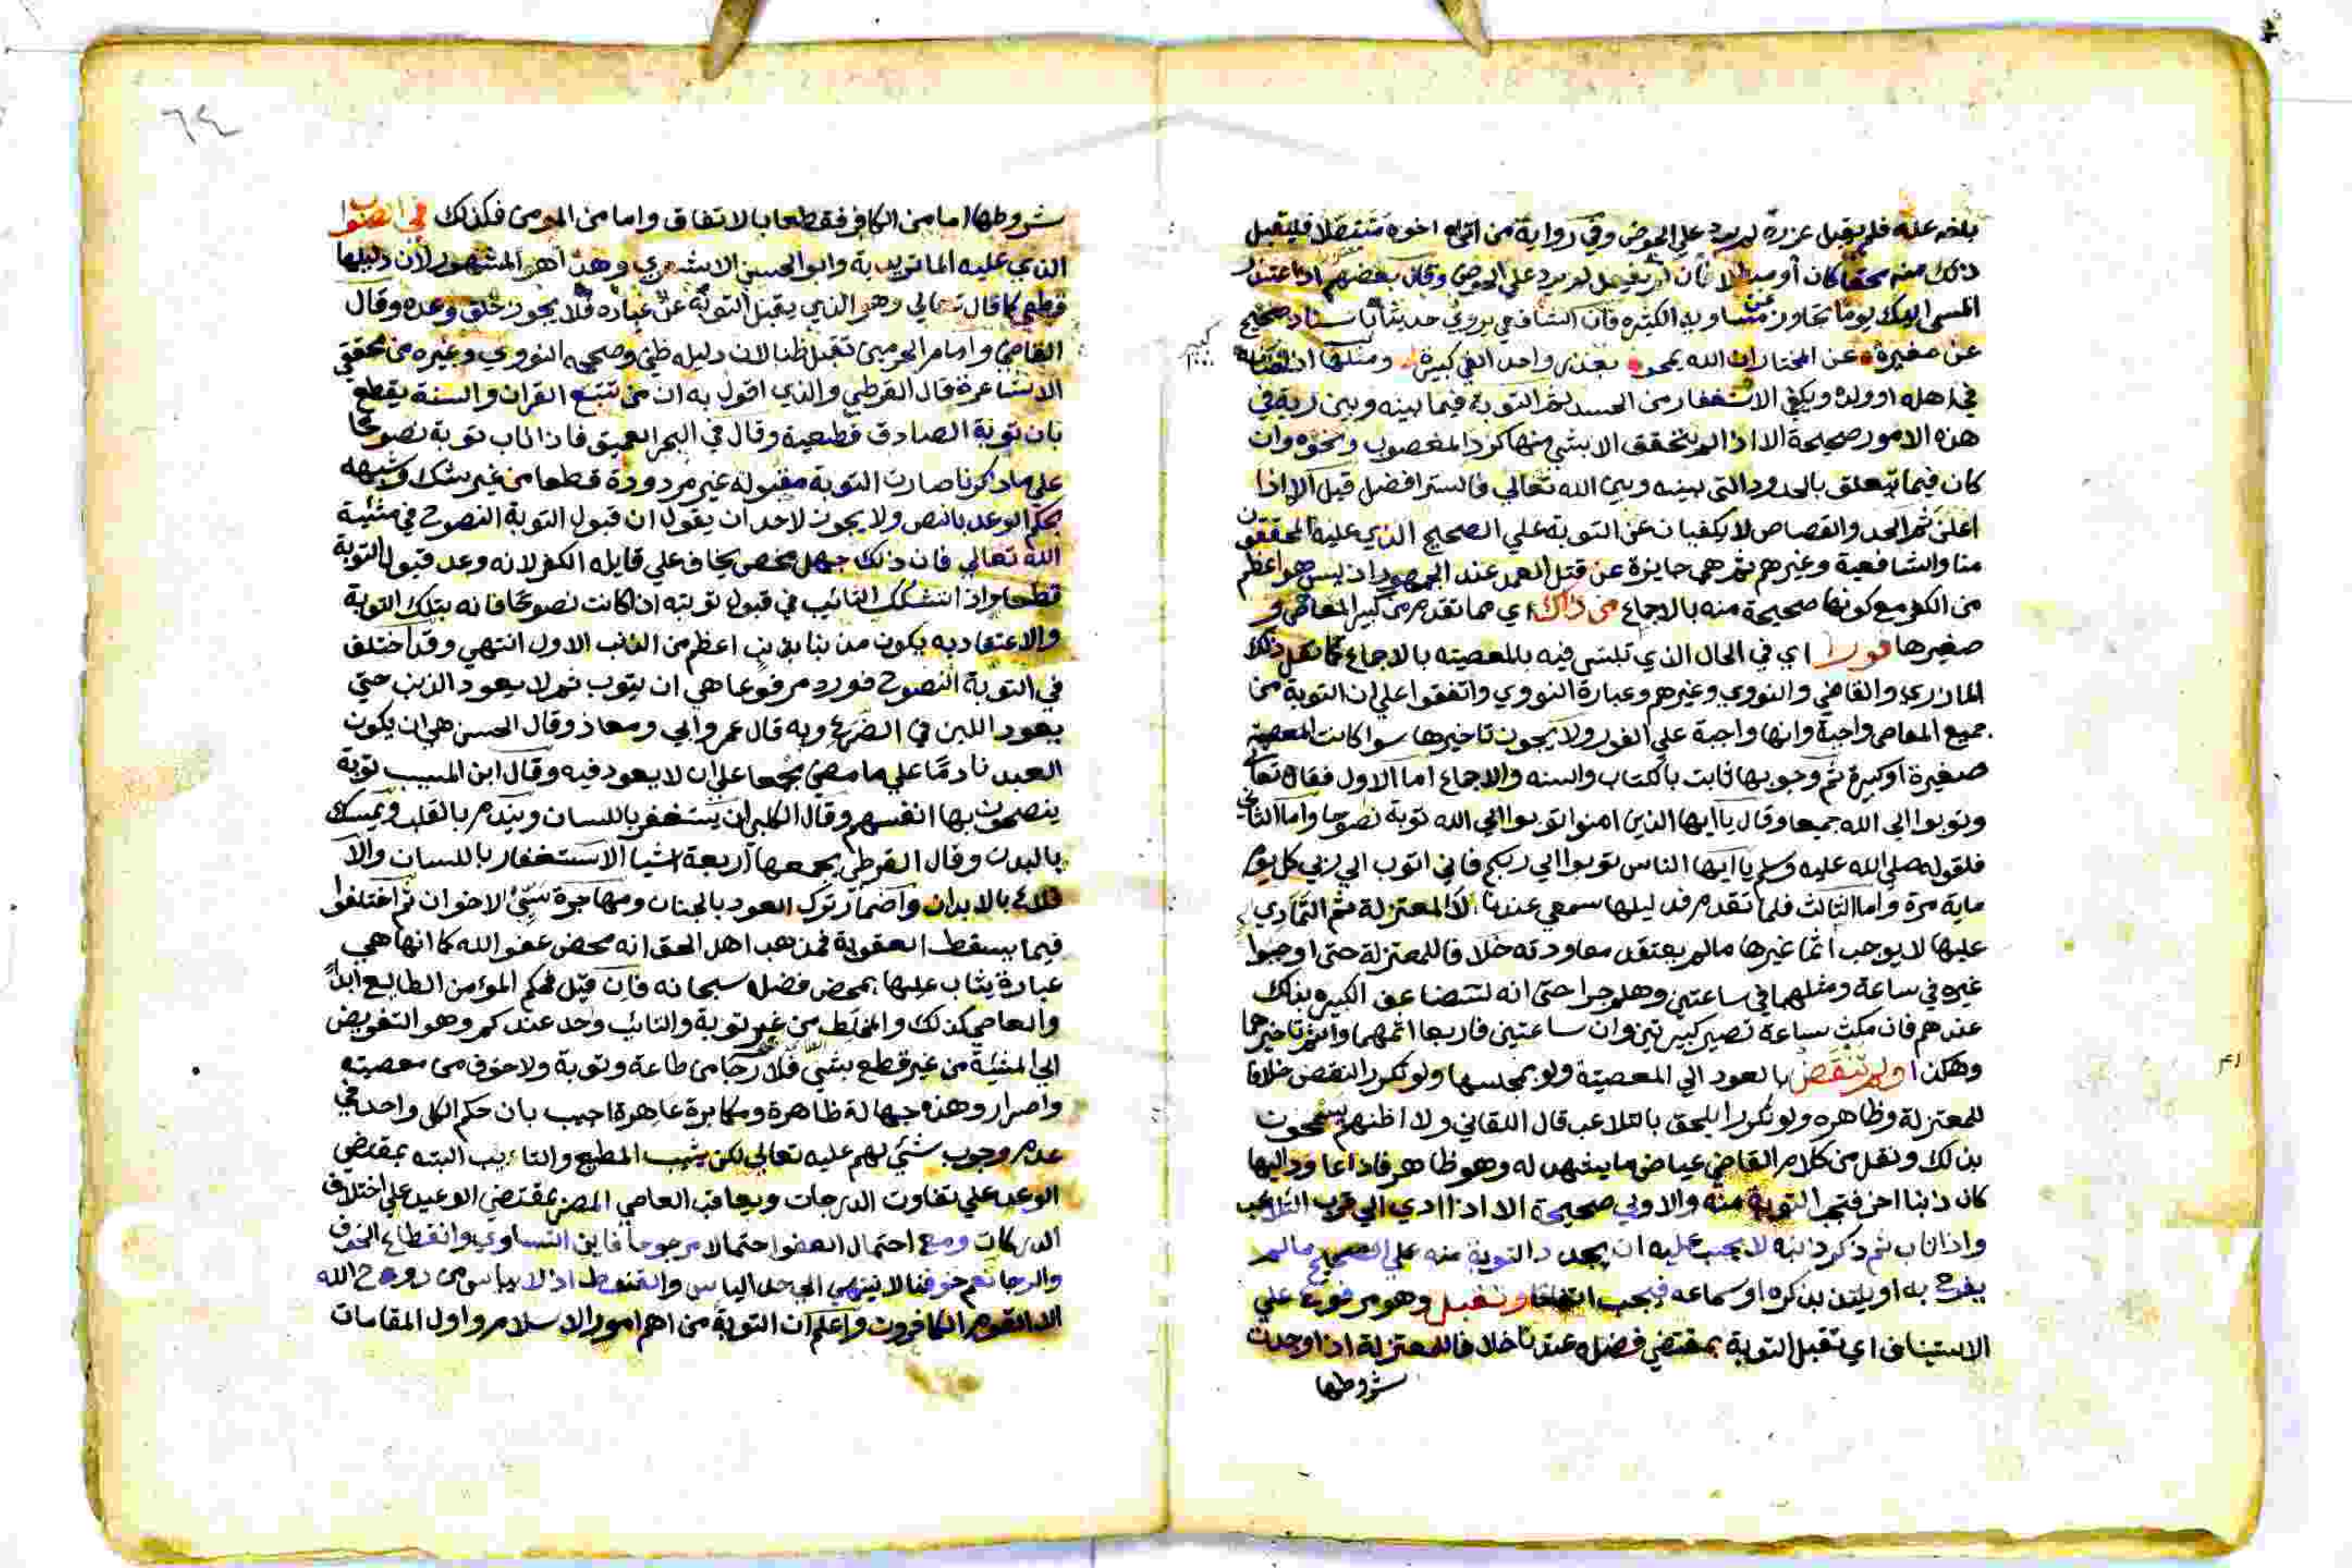 بلغه عنه فلم يقبل عزره لم يرد علي الحوض وفي رواية من اتاه اخوه متنصلا فليقبل
ذلك منه محقا كان أو مبطلا فان لم يفعل لم يرد علي الحوض وقال بعضهم اذا اعتذر
المسي اليك يوما تجاوز عن مساويه الكثيره فان الشافعي يروي حديثا باسناد صحيح
عن مغيرة عن المختار ان الله يمحو بعذر واحد الفي كبيرة ومثلها
في اهله او ولده ويكفي الاستغفار من الحسد ثم التوبة فيما بينه وبين ربه في
هذه الامور صحيحة الا اذا لم يتحقق الا بشي منها كرد المغصوب ونحوه وان
كان فيما يتعلق بالحدود التي بينه وبين الله تعالي فالستر افضل قيل الا اذا
اعلن ثم الحد والقصاص لا يكفيان عن التوبة علي الصحيح الذي عليه المحققون
منا والشافعية وغيرهم ثم هي جايزة عن قتل العمد عند الجمهور اذ ليس هو اعظم
من الكفر مع كونها صحيحة منه بالاجماع من ذاك اي مما تقدم من كبير المعاصي و
صغيرها فورا اي في الحال الذي تلبس فيه بالمعصيته بالاجماع كما نقل ذلك
المازري والقاضي والنووي وغيرهم وعبارة النووي واتفقوا علي ان التوبة من
جميع المعاصي واجبة وانها واجبة علي الفور ولا يجوز تاخيرها سوا كانت المعصية
صغيرة او كبيرة ثم وجوبها ثابت بالكتاب والسنه والاجماع اما الاول فقال تعا
وتوبوا الي الله جميعا وقال يا ايها الذين امنوا توبوا الي الله توبة نصوحا واما الثاني
فلقوله صلي الله عليه وسلم يا ايها الناس توبوا الي ربكم فاني اتوب الي ربي كل يوم
ماية مرة واما الثالث فلما تقدم فدليلها سمعي عندنا لا المعتزلة ثم التمادي
عليها لا يوجب اثما غيرها مالم يعتقد معاودته خلافا للمعتزلة حتي اوجبوا
غيره في ساعة ومثلهما في ساعتين وهلم جرا حتي انه لتضاعف الكبيره بذلك
عندهم فان مكث ساعة تصير كبيرتين وان ساعتين فاربعا اثمهما واثم تاخيرهما
وهكذا ولم تنقض بالعود الي المعصيتة ولو بمجلسها ولو تكرر النقض خلافا
للمعتزلة وظاهره ولو تكرر ايلحق بالتلاعب قال اللقاني ولا اظنهم يسمحون
بذلك ونقل من كلام القاضي عياض ما يشهد له وهو ظاهر فاذا عاود اليها
كان ذنبا اخر فتجب التوبة منه والاولي صحيحة الا اذا ادي الي قرب التلاعب
واذا تاب ثم ذكر ذنبه لا يجب عليه ان يجدد التوبة منه علي الصحيح مالم
يفرح به او يلتذ بذكره او سماعه فيجب اتفاقا وتقبل وهو مرفوع علي
الاستيناف اي تقبل التوبة بمقتضي فضله عندنا خلافا للمعتزلة اذا وجدت
شروطها
٦٤
شروطها اما من الكافر فقطعا بالاتفاق واما من المومن فكذلك في الصواب
الذي عليه الماتريدية وابو الحسن الاشعري وهذا هو المشهور لان دليلها
قطعي كما قال تعالي وهو الذي يقبل التوبة عن عباده فلا يجوز خلق وعده وقال
القاضي وامام الحرمين تقبل ظنا لان دليله ظني وصححه النووي وغيره من محققي
الاشاعرة قال القرطبي والذي اقول به ان من تتبع القران والسنة يقطع
بان توبة الصادق قطعية وقال في البحر العميق فاذا تاب توبة نصوحا
علي ما ذكرنا صارت التوبة مقبولة غير مردودة قطعا من غير شك وشبهه
بحكم الوعد بالنص ولا يجوز لاحد ان يقول ان قبول التوبة النصوح في مشئية
الله تعالي فان ذلك جهل محض يخاف علي قايله الكفر لانه وعد قبول التوبة
قطعا واذا تشكك التائب في قبول توبته اذا كانت نصوحا فانه بتلك التوبة
والاعتقاد به يكون مذنبا بذنب اعظم من الذنب الاول انتهي وقد اختلف
في التوبة النصوح فورد مرفوعا هي ان يتوب ثم لا يعود الذنب حتي
يعود اللبن في الضرع وبه قال عمر وابي ومعاذ وقال الحسن هي ان يكون
العبد نادما علي ما مضي مجمعا علي ان لا يعود فيه وقال ابن المسيب توبة
ينصحون بها انفسهم وقال الكلبي ان يستغفر باللسان ويندم بالقلب ويمسك
بالبدن وقال القرطبي يجمعها اربعة اشيا الاستغفار باللسان والا
قلاع بالابدان واضمار ترك العود بالجنان ومهاجرة سيئ الاخوان ثم اختلفوا
فيما يسقط العقوبة فمذهب اهل الحق انه محض عفو الله كما انها هي
عبادة يثاب عليها بمحض فضله سبحانه فان قيل فحكم المؤمن الطايع ابدا
والعاصي كذلك والمخلط من غير توبة والتائب وحد عندكم وهو التفويض
الي المشئية من غير قطع بشئ فلا رجا من طاعة وتوبة ولا خوف من معصيته
واصرار وهذه جهالة ظاهرة ومكابرة عاهرة اجيب بان حكم الكل واحد في
عدم وجوب شئ لهم عليه تعالي لكن يثيب المطيع والتاءيب البته بمقتضي
الوعد علي تفاوت الدرجات ويعاقب العاصي المصر بمقتضي الوعيد علي اختلاف
الدركات ومع احتمال العفو احتمالا مرجوحا فاين التساوي وانقطاع الخوف
والرجا نعم خوفنا لا ينتهي الي حد الياس والقنوط اذ لا يياس من روح الله
الا القوم الكافرون واعلم ان التوبة من اهم امور الاسلام واول المقامات